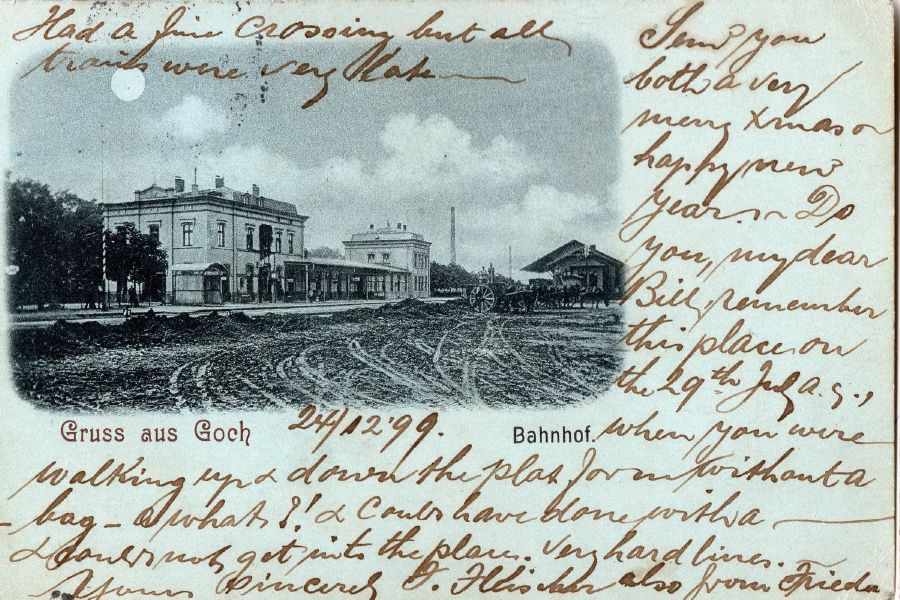 Had a fine crossing but all
trains were very late
Send you
both a very
merry Xmas or
happy new
Year. Do
you, my dear
Bill, remember
this place on
the 29th July a.
Gruss aus Goch
24/12'99.
Bahnhof.
when you were
walking up & down the platform without a
- bag - a what?! & could have done with a
& could not get into the place. Very hard lines.
Yours sincerely F. Fleischer also from Frieda